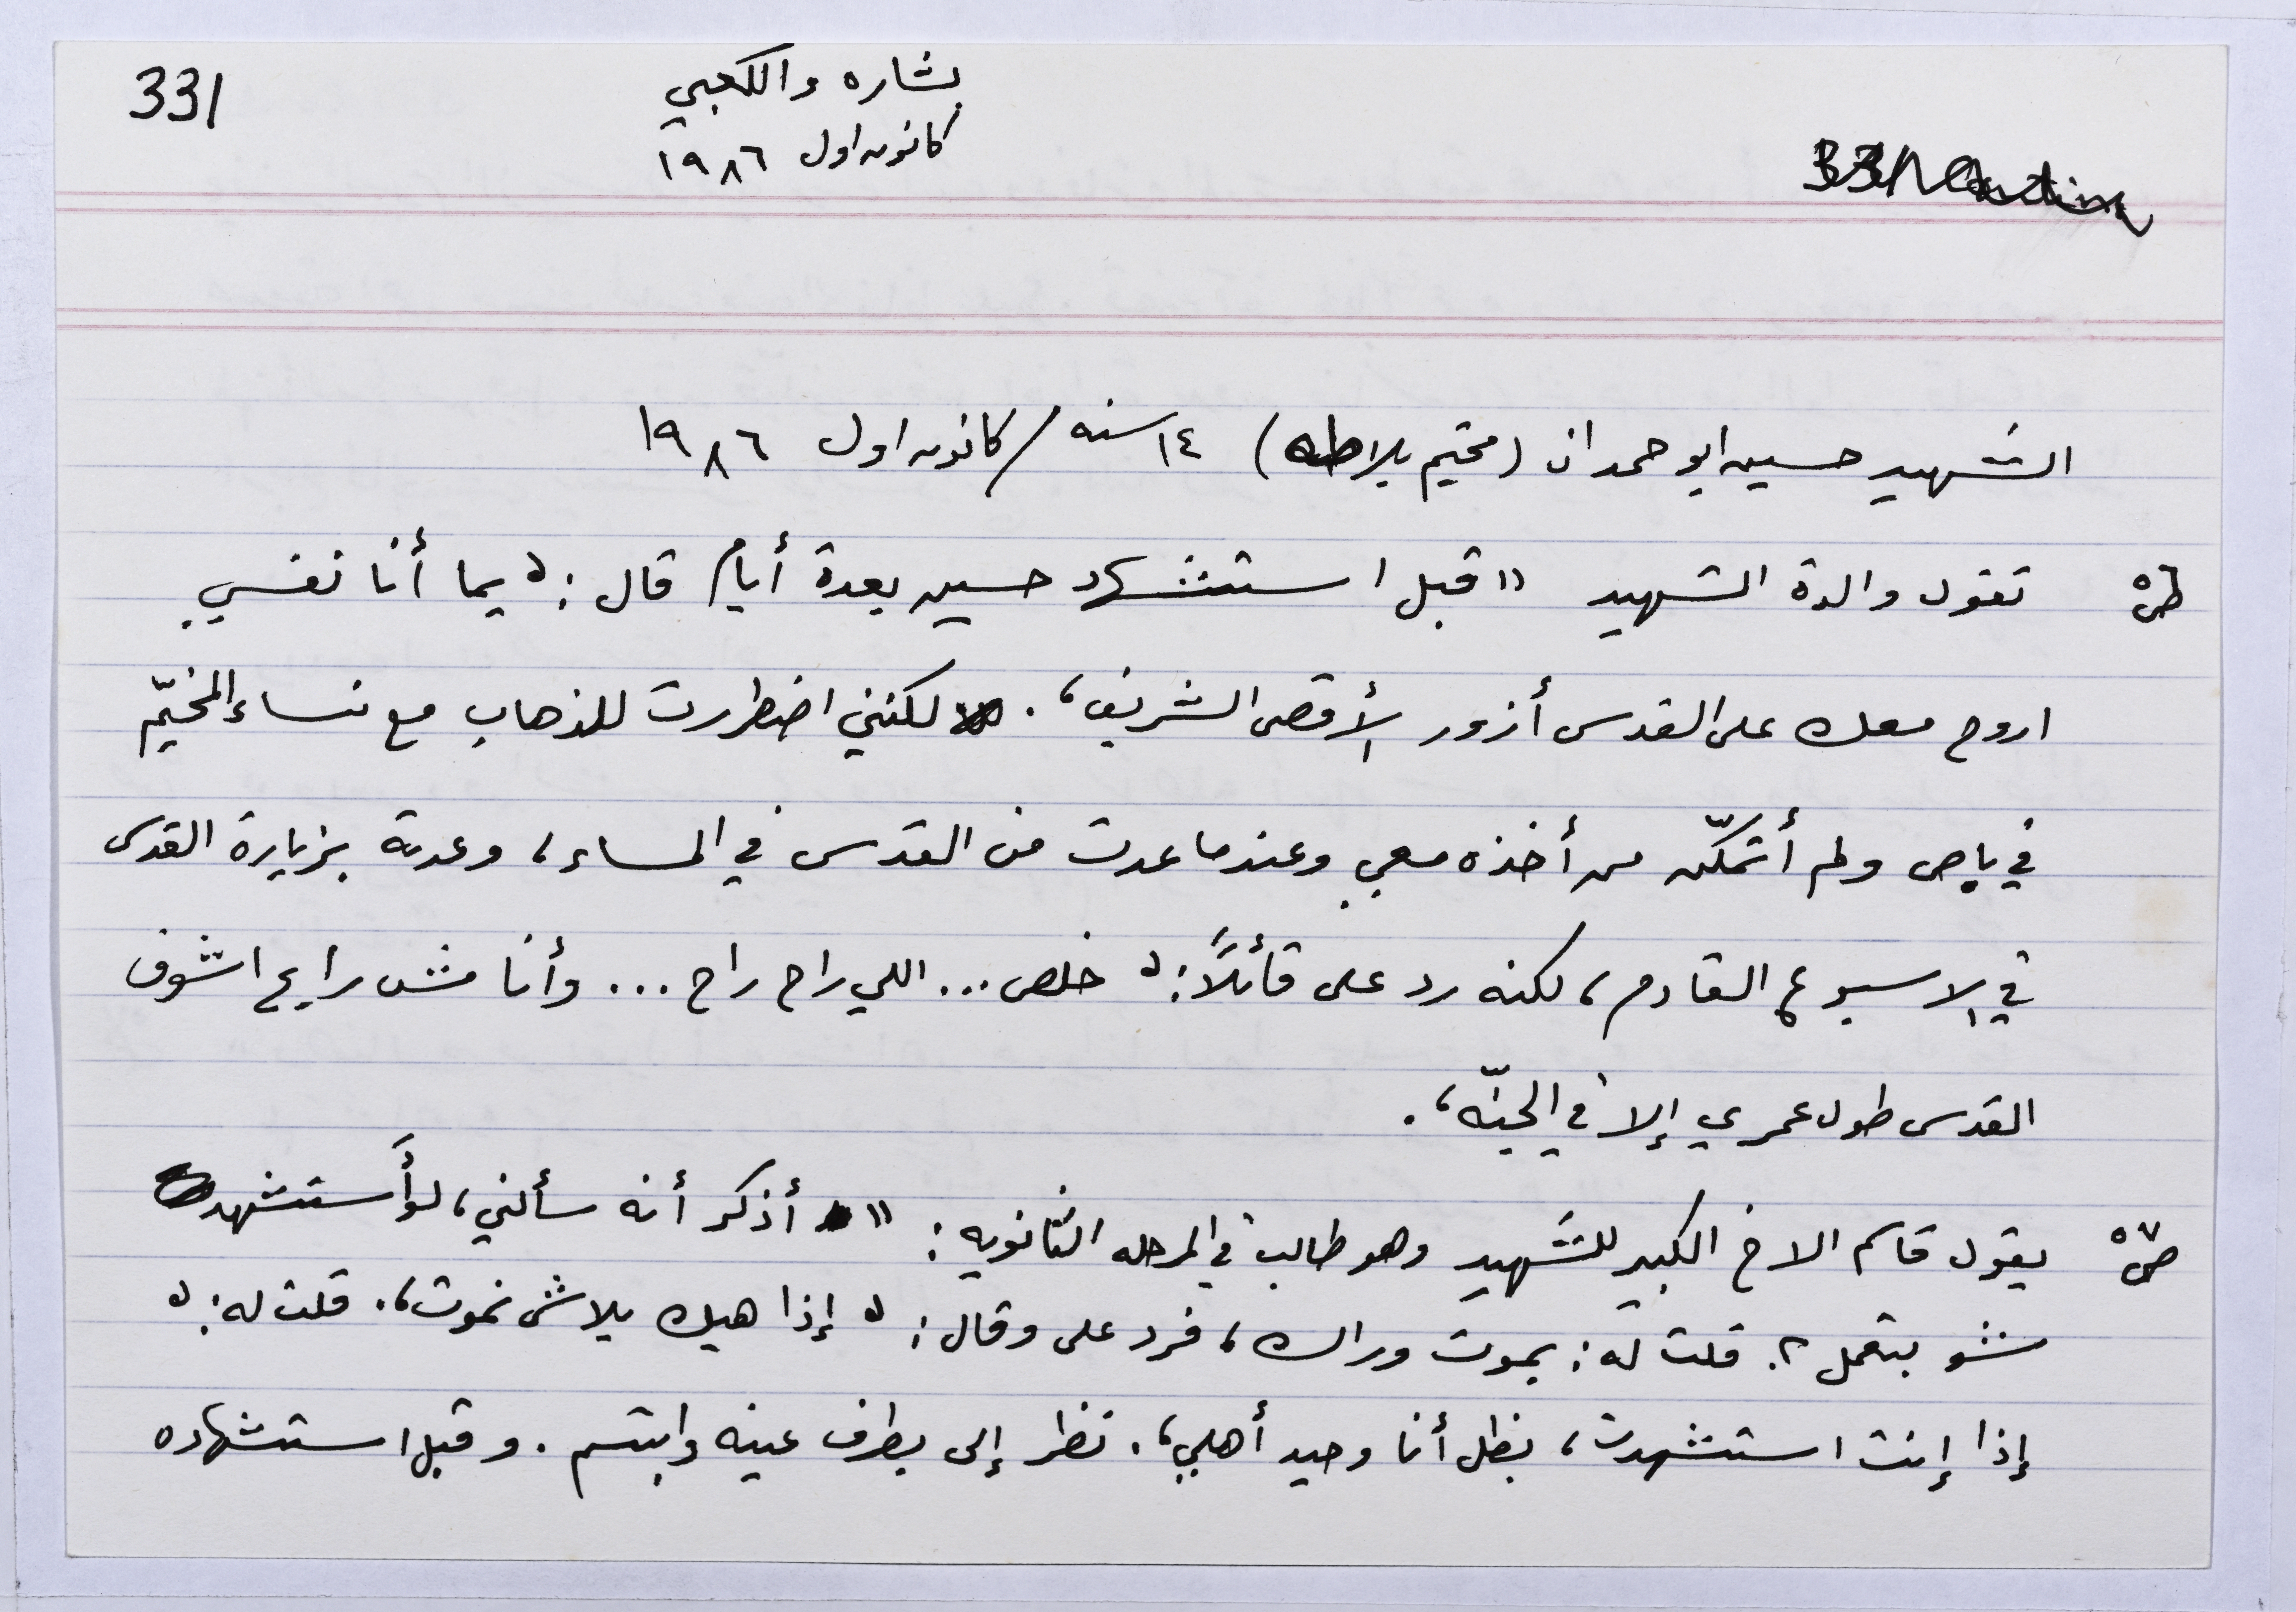 331
بشاره واللكعبي
كانون اول ١٩٨٦
الشهيد حسين ابو حمدان (مخيم بلاطه) ١٤ سنه / كانون اول ١٩٨٦
تقول والدة الشهيد "قبل استشهاد حسين بعدة أيام قال: ، يما أنا نفسي
اروح معك على القدس أزور الأقصى الشريف،. لكنني اضطررت للذهاب مع نساء المخيّم
في باص ولم أتمكّن من أخذه معي وعندما عدت من القدس في المساء، وعدته بزيارة القدس
في الاسبوع القادم، لكنه رد على قائلاً: ، خلص... اللي راح راح... وأنا مش رايح اشوف
القدس طول عمري إلا في الجنّه،.
ص٧ يقول قاسم الاخ الكبير للشهيد وهو طالب في المرحله الثانويه: " أذكر أنه سألني، لو أستشهد
شو بتعمل؟. قلت له: بموت وراك، فرد على وقال: ، إذا هيك بلاش نموت،. قلت له: ،
إذا إنت استشهدت، بظل أنا وحيد أهلي،. نظر إلى بطرف عينه وابتسم. وقبل استشهاده